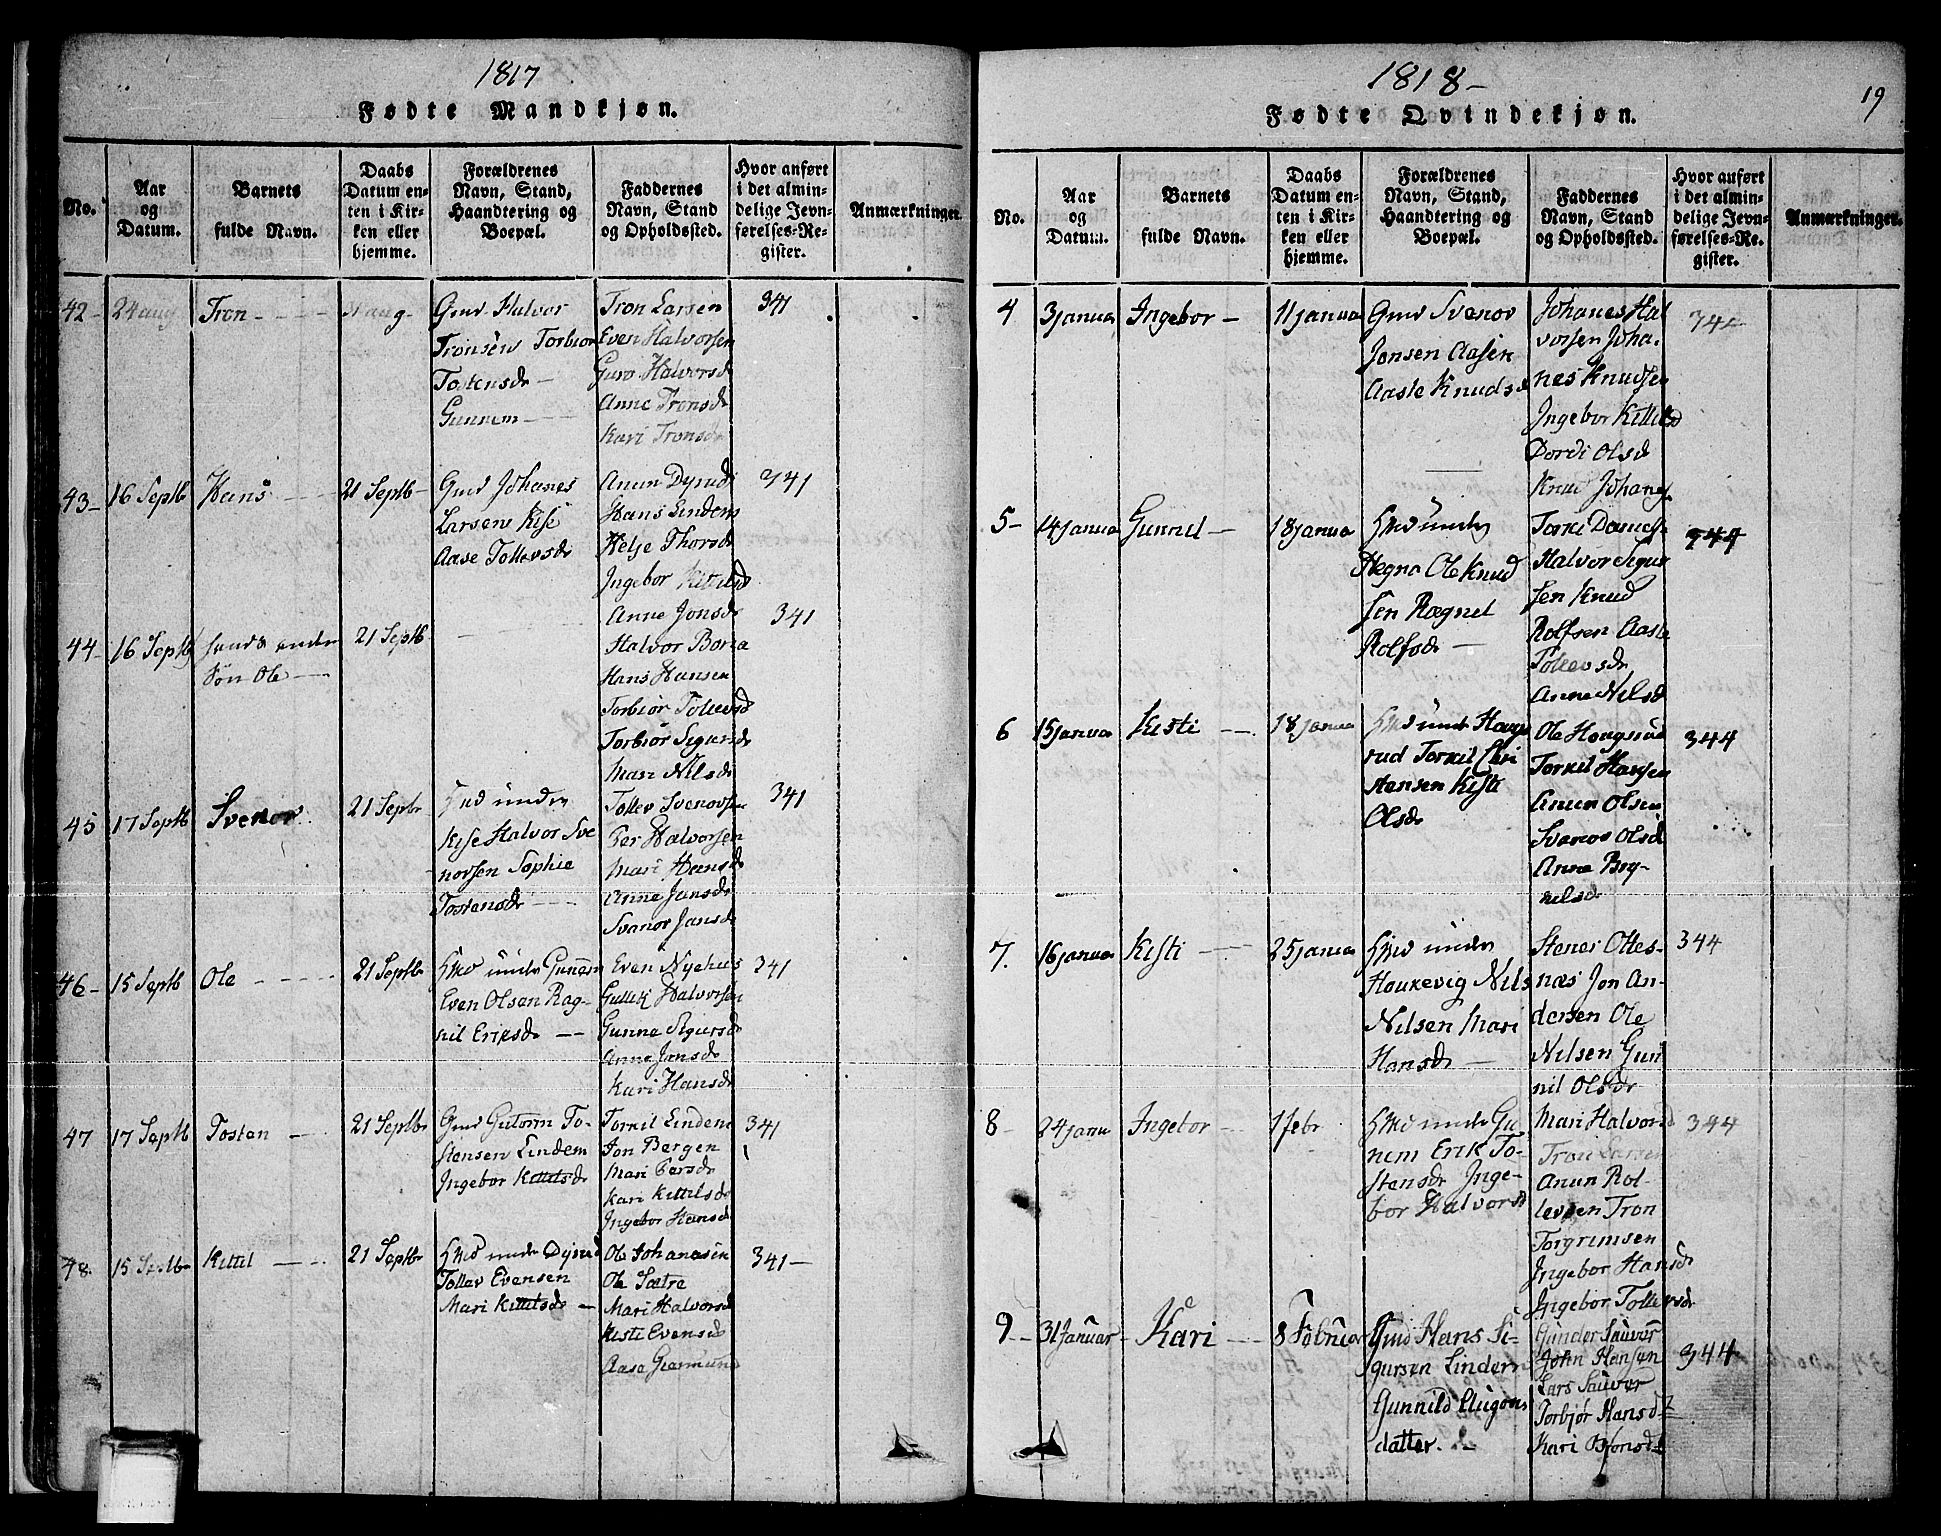 1817
Fødte Mandkjøn.
No.
Aar
og
Datum.
Barnets
fulde Navn.
Daabs
Datum en-
ten i Kir-
ken eller
hjemme.
Forældrenes
Navn, Stand,
Haandtering og
Boepæl.
Faddernes
Navn, Stand
og Opholdssted.
Hvor anført
i det almin-
delige Jevn-
førelses-Re-
gister.
Anmærkninger.
42 - 24 aug Tron - aug -
Gmd Halvor
Tronsen Torbior
Tostensdr -
Gunnem -
Tron Larsen
Even Halvorsen
Guro Halvorsd
Anne Tronsd
Kari Tronsdr
341
43 - 16 Septb Hans - 21 Septb -
Gmd Johanes
Larsens Kise
Aase Tollevsdr
Anun Dyrud
Hans Lindem
Helje Thorsd
Ingebor Kittilsd
Anne Jonsdr
341
44 - 16 Septb
Søn Ole -
21 Septb
Halvor Borra
Hans Hansen
Torbior Tollevsd
Torbiør Sigursd
Mari Nilsd
341
45 17 Septb Svenor 21 Septbr
Hmd under
Kise Halvor Sve
norsen Sophie
Tostensdr -
Tollev Svenorsen
Per Halvorsen
Mari Hansd
Anne Jansdr
Svanor Jansdr
341
46 - 15 Septb Ole - 21 Septbr
Hmd under Gunem
Even Olsen Rag-
nil Eriksdr -
Even Nyehus
Gullik Halvorsen
Gunne Sigursd
Anne Jansdr
Kari Hansdr
341
47 17 Septb Tostan - 21 Septbr
Gmd Gutorm To-
stensen Lindem
Ingebor Kittilsdr
Torkil Lindem
Jon Bergen
Mari Persdr
Kari Kittilsdr
Ingebor Hansdr
341
48. 15 Septbr Kittil - 21 Septbr
Hmd under Dyrud
Tollev Evensen
Mari Kittilsdr -
Ole Johanesen
Ole Sætra
Mari Halvorsd
Kisti Evensd
Aase Giermund
341 -
1818 -
19
Fødte Qvindekjøn.
No.
Aar
og
Datum.
Barnets
fulde Navn.
Daabs
Datum en-
ten i Kir-
ken eller
hjemme.
Forældrenes
Navn, Stand,
Haandtering og
Boepæl.
Faddernes
Navn, Stand
og Opholdssted.
Hvor anført
i det almin-
delige Jevn-
førelses-Re-
gister.
Anmærkninger.
4 3 janua Ingebor - 11 janua
Gmd Svenor
Jonsen Aasen
Aaste Knudsd
Johanes Hal
vorsen Joha.
nes Knudsen
Ingebor Kittilsd
Dordi Olsd
Knud Johanes
344
5 - 14 janua Gunnil - 18 janua
Hmd under
Hegna Ole Knud
sen Rægnel
Rolfsdr -
Torki Daniels
Halvor Sigur
sen Knud
Rolfsen Aaste
Tollevsdr
Anne Nilsd
344
6 15 janua Kisti - 18 janua
Hmd under Haugs
rud Torkil Chri
stensen Kisti
Olsdr
Ole Haugsrud
Torkil Hansen
Anun Olsen
Svanor Olsd
Anne Reg-
nelsdr
344
7. 16 janua Kisti - 25 janua
Hmd under
Haukevig Nils
Nilsen Mari
Hansdr -
Stener Ottes-
næs Jon An-
dersen Ole
Nilsen Gun
nil Olsdr
344
8 - 24 janu Ingebor - 1 febr
Hmd under Gu
nem Erik To-
stensdr Inge-
bor Halvorsd
Mari Halvorsd
Tron Larsen
Anun Rol-
levsen Tron
Torgrimsen
Ingebor Hansd
Ingebor Tollevsdr
344
9 - 31 Januar - Kari - 8 Februar
Gmd Hans Si-
gursen Lindem
Gunnild Augons
datter.
Gunder Sauver
John Hansen
Lars Sauver
Torbjør Hansd
Kari Bjonsd
344